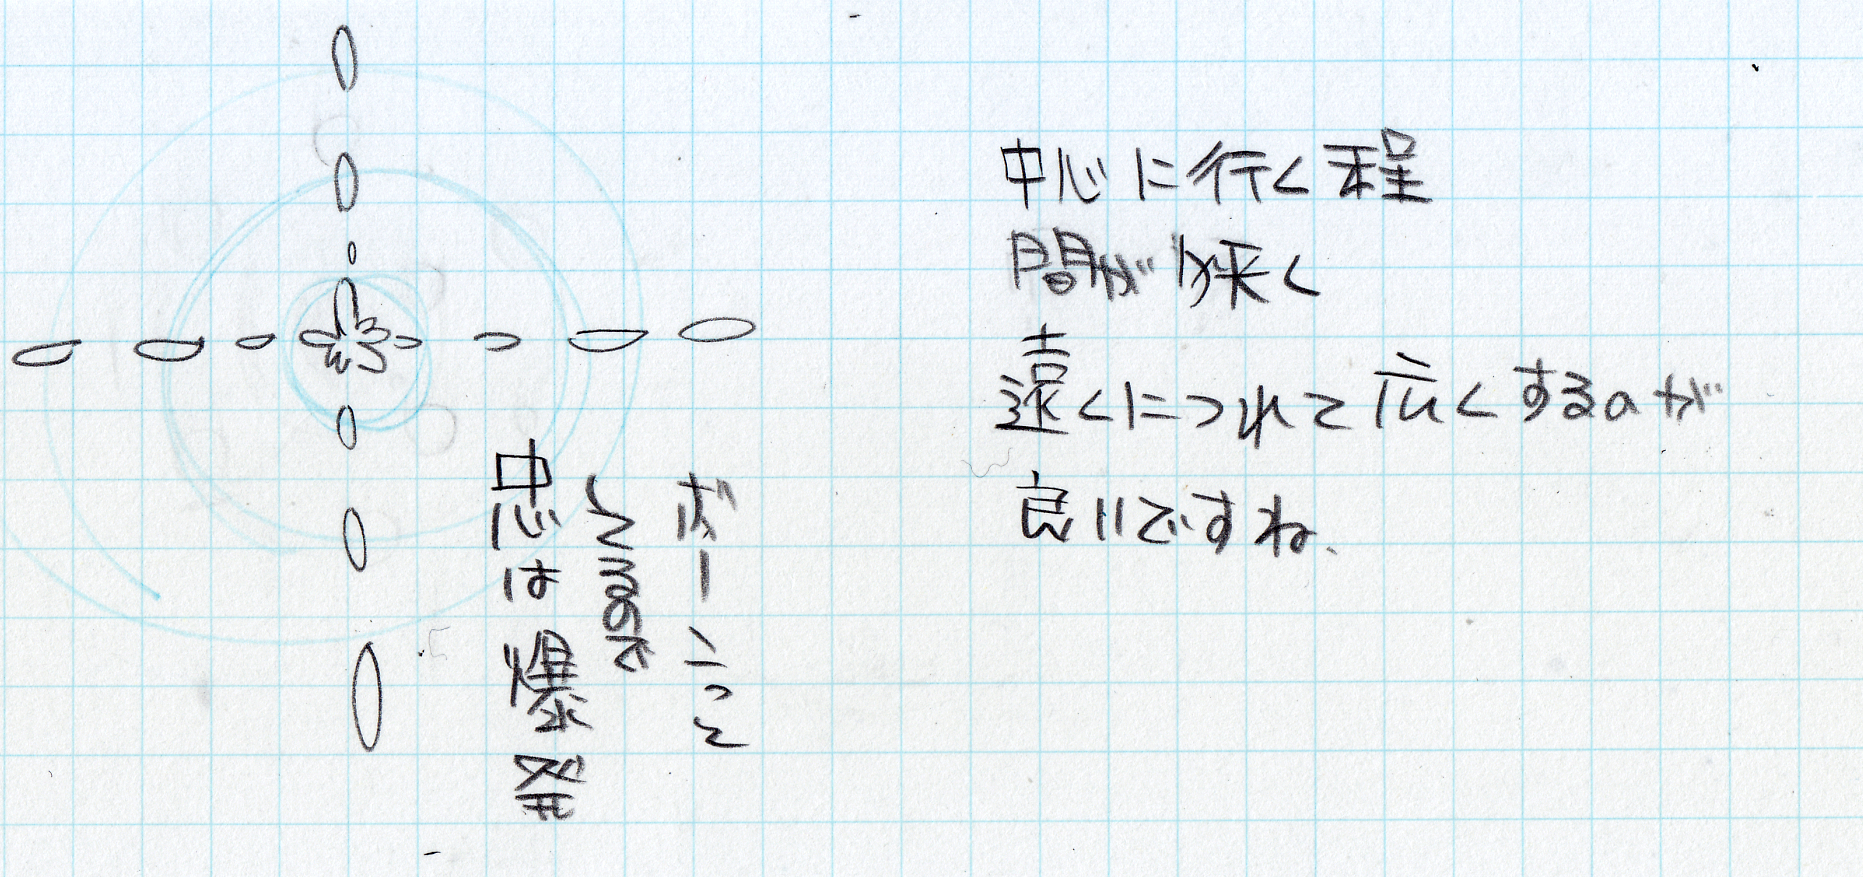 中心に行く程
間が狭く
遠くにつれて広くするのが
良いですね、
ボーニっと
してるので
中心は爆発